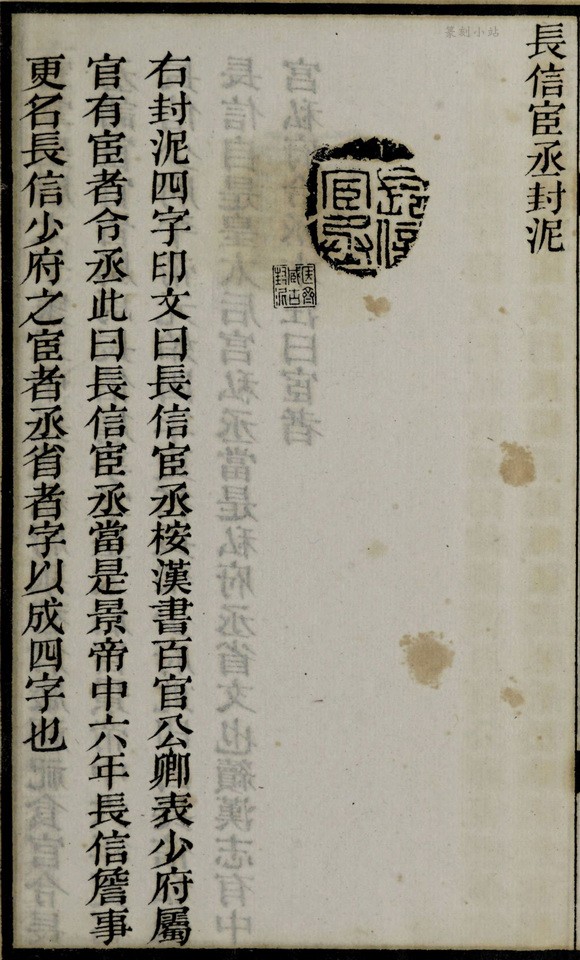 長信宦丞封泥
長信宦丞
右封泥四字印文曰長信宦丞桉漢書百官公卿表少府屬
官有宦者令丞此曰長信宦丞當是景帝中六年長信詹事
更名長信少府之宦者丞省者字以成四字也
篆刻小站